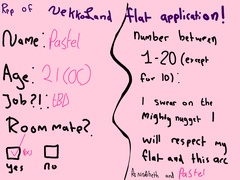 Rep of Nekkoland flat application!
Name: Pastel
Age: 21 (OC)
Job?!: tBD
Roommate?
yes no
Number between
1-20 (except
for 10):
I swear on the
Mighty nugget I
will respect my
flat and this arc
and Pastel